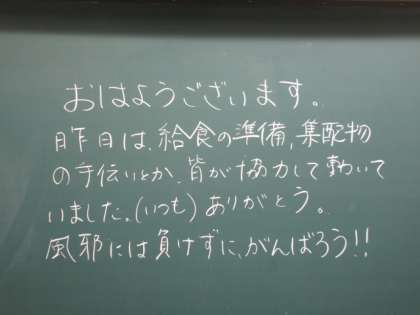 おはようございます。
昨日は、給食の準備,集配物
の手伝いとか、皆が協力して動いて
いました。(いつも)ありがとう。
風邪には負けずに、がんばろう!!